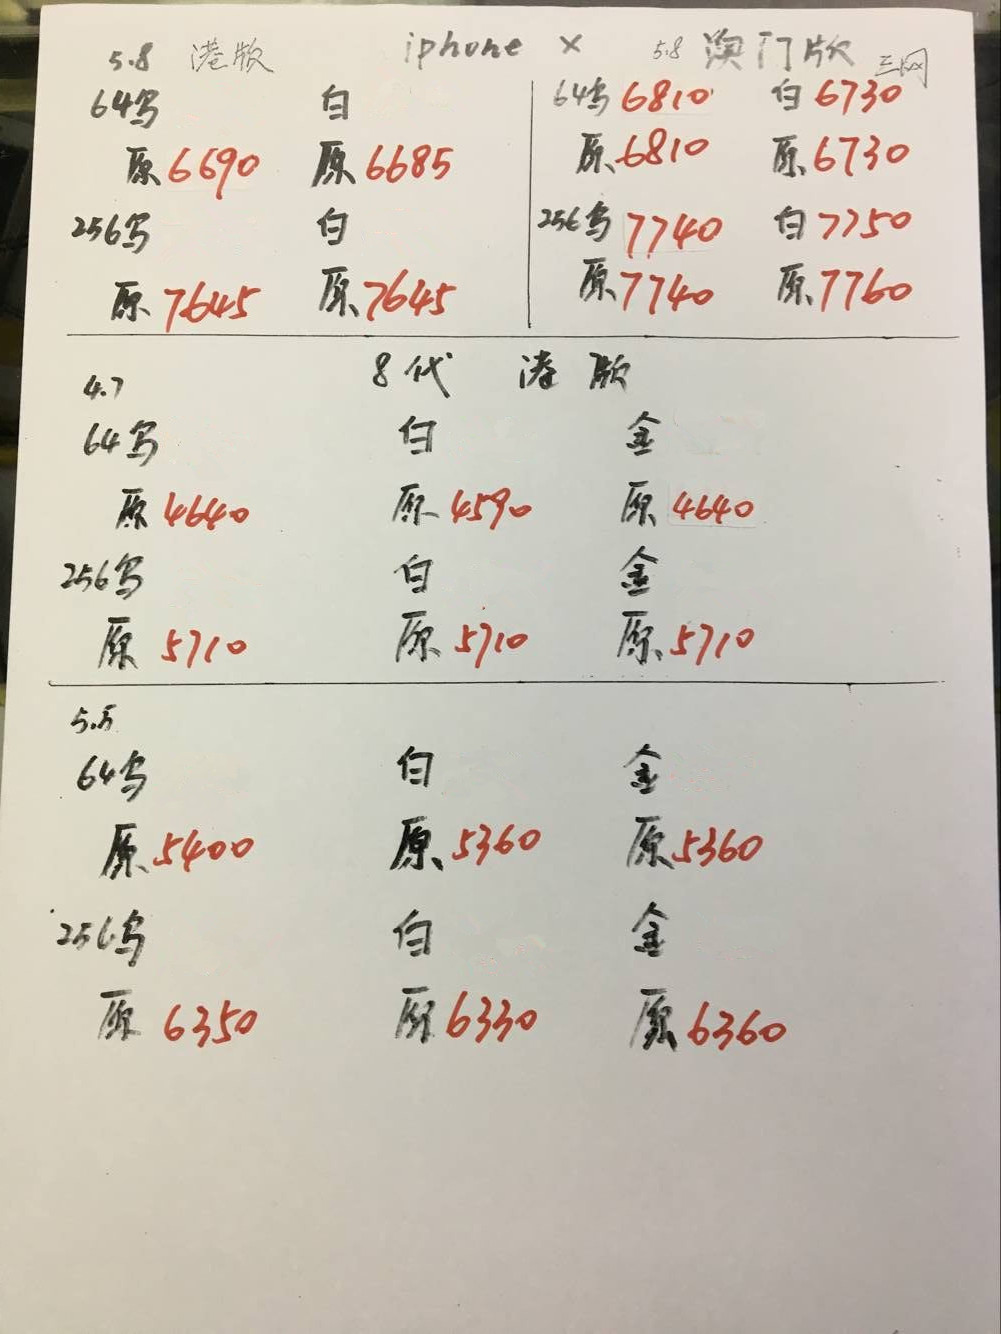 iphone X
5.8 港版
64乌 白
原 6690 原 6685
256乌 白
原 7645 原 7645
5.8 澳门版 三网
64乌 6810 白 6730
原 6810 原 6730
256乌 7740 白 7750
原 7740 原 7760
8代 港版
4.7
64乌 白 金
原 4640 原 4590 原 4640
256乌 白 金
原 5710 原 5710 原 5710
5.5
64乌 白 金
原 5400 原 5360 原 5360
256乌 白 金
原 6350 原 6330 原 6360